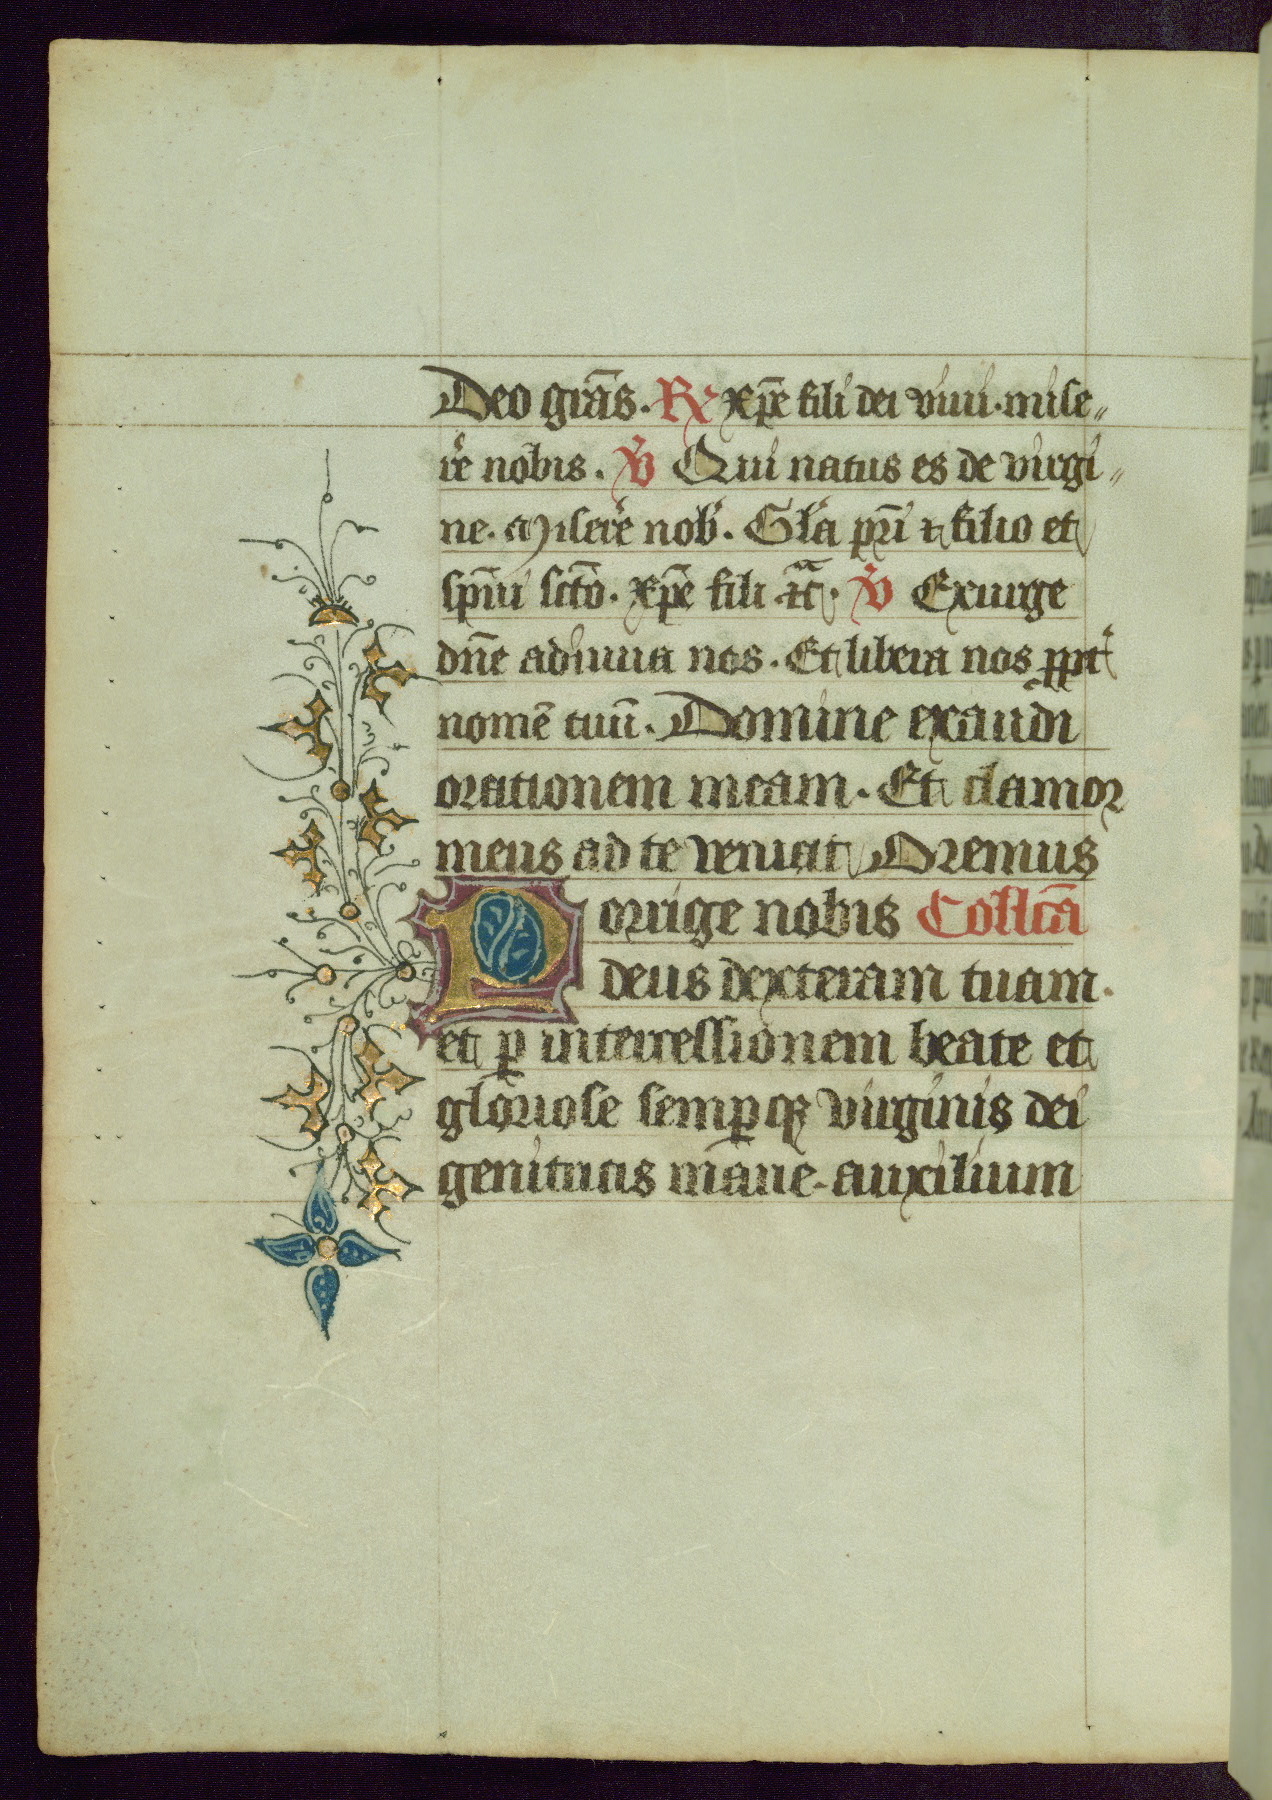 Deo grãs. R̷ xp̄e fili dei viui. mise„
re nobis. ℣ Qui natus es de virgi„
ne. Misere nob'. Gl'a pr̄i ⁊ filio et
sp̄ui sc̄to. xp̄e fili ⁊c̄. ℣ Exurge
dn̄e adiuua nos. Et libera nos ꝓpt'
nomē tuū. Domine exaudi
orationem meam. Et clamor
meus ad te veniat Oremus
Porrige nobis Coll'cā
deus dexteram tuam.
et ꝑ intercessionem beate et
gloriose sempꝙ virginis dei
genitricis marie. auxilium